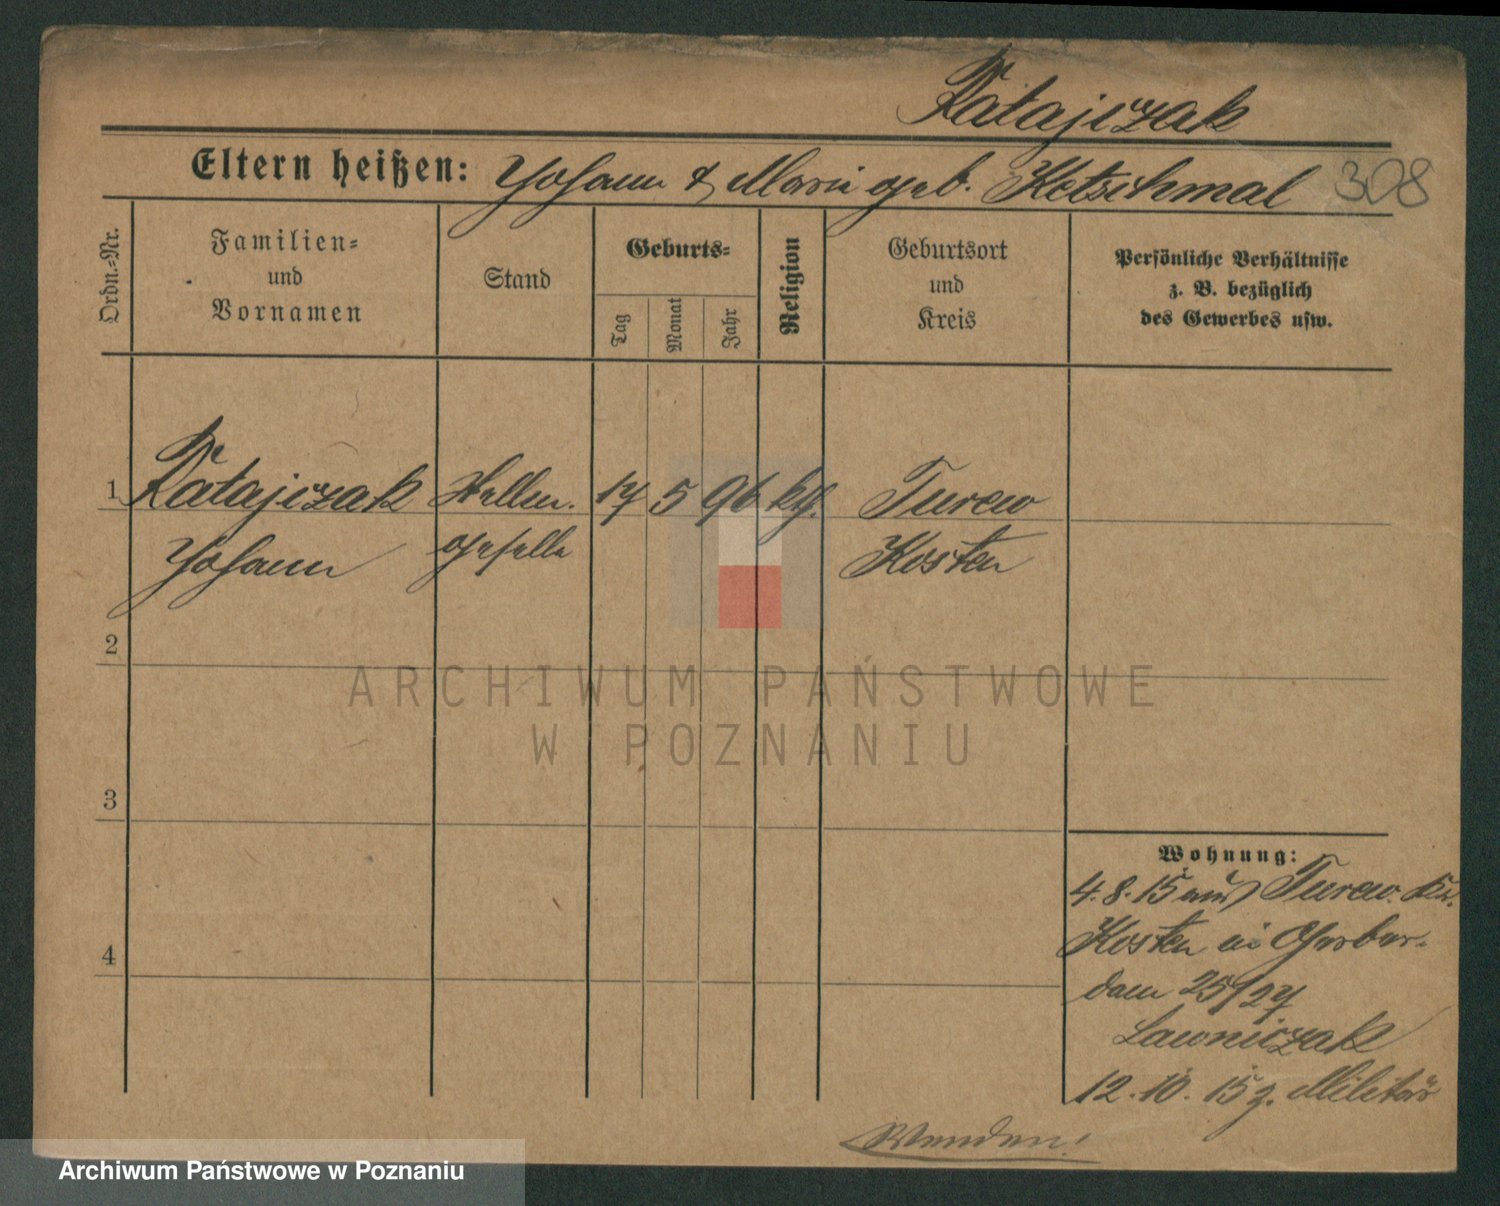 Ratajczak
Eltern heißen: Johann & Marie geb. Ketschmal 308
Ordn.-Nr.
Familien-
und
Vornamen
Stand
Geburts-
Tag
Monat
Jahr
Religion
Geburtsort
und
Kreis
Persönliche Verhältnisse
z. B. bezüglich
des Gewerbes usw.
1 Ratajczak 17 5 96 kth. Turew
Johann geselle Kosten
2
3
4
Wohnung:
4.8.15 aus Turew. Kr.
Kosten in Gerber-
damm 25/27
Lawniczak
12.10.15 z. Militär
Wenden!
ARCHIWUM PAŃSTWOWE
W POZNANIU
Archiwum Państwowe w Poznaniu